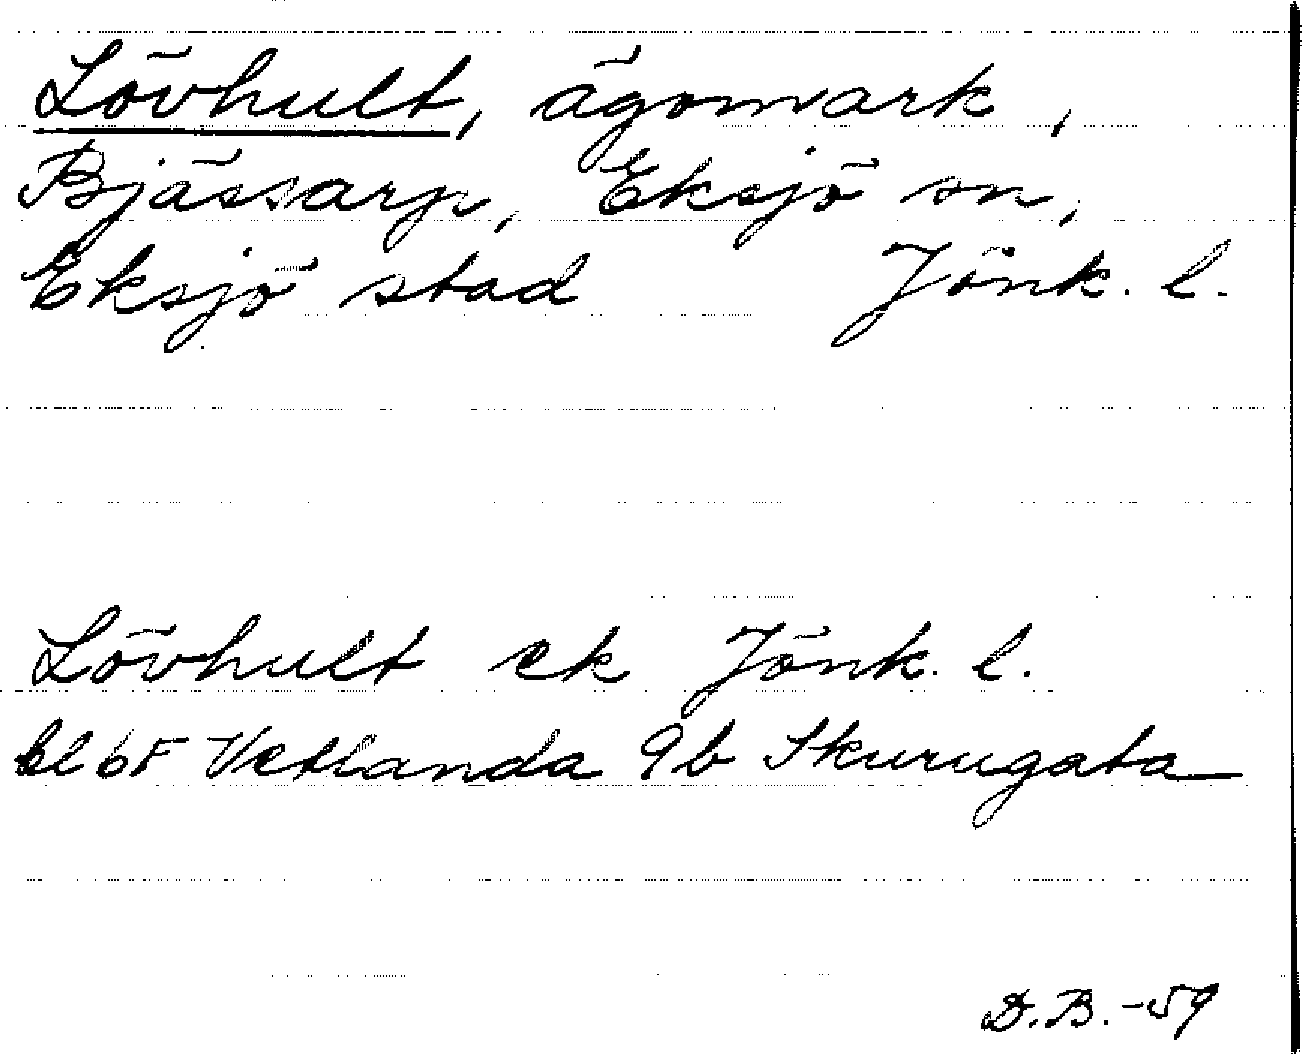 Lövhult, ägomark,
Bjässarp, Eksjö sn,
Eksjö stad Jönk. l.
Lövhult ek Jönk. l.
bl 6F Vetlanda 9b Skurugata
D.B. -59